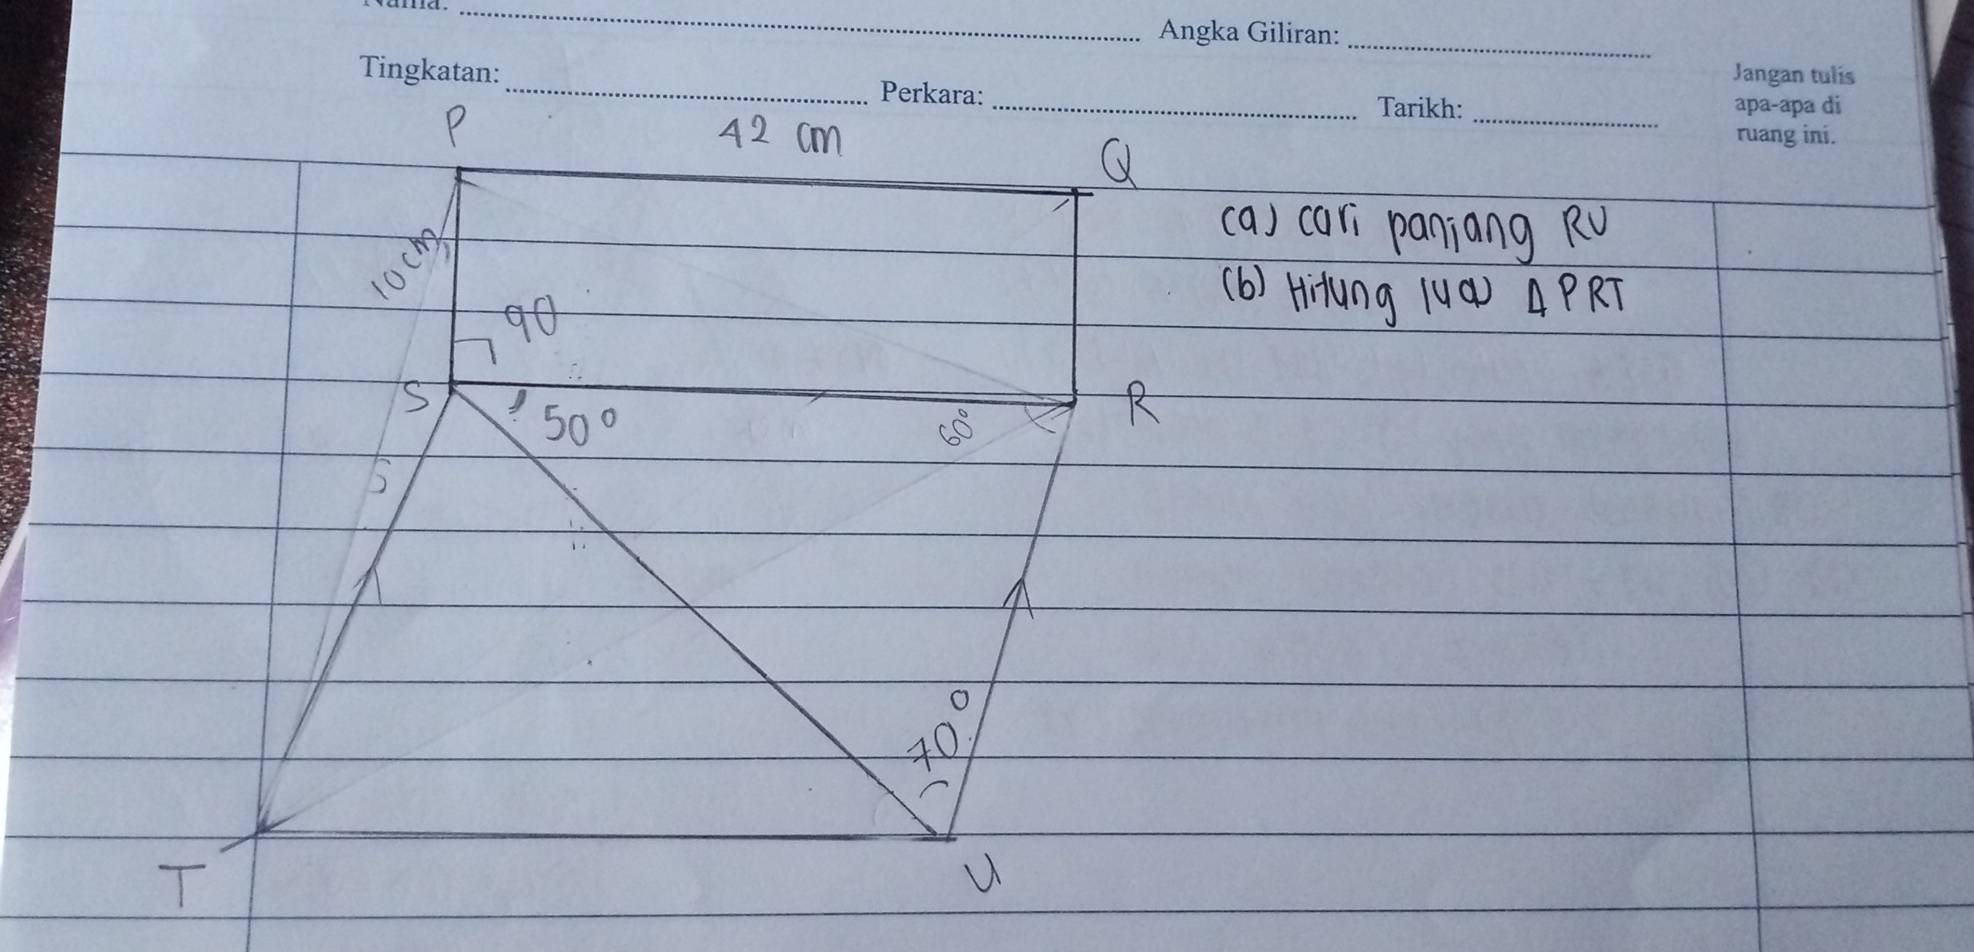 Nama:
Angka Giliran:
Tingkatan:
Perkara:
Tarikh:
Jangan tulis
apa-apa di
ruang ini.
P
42 cm
Q
(a) cari panjang RU
(b) Hitung luas Δ PRT
10cm
90
S
50°
60°
R
5
70°
T
U